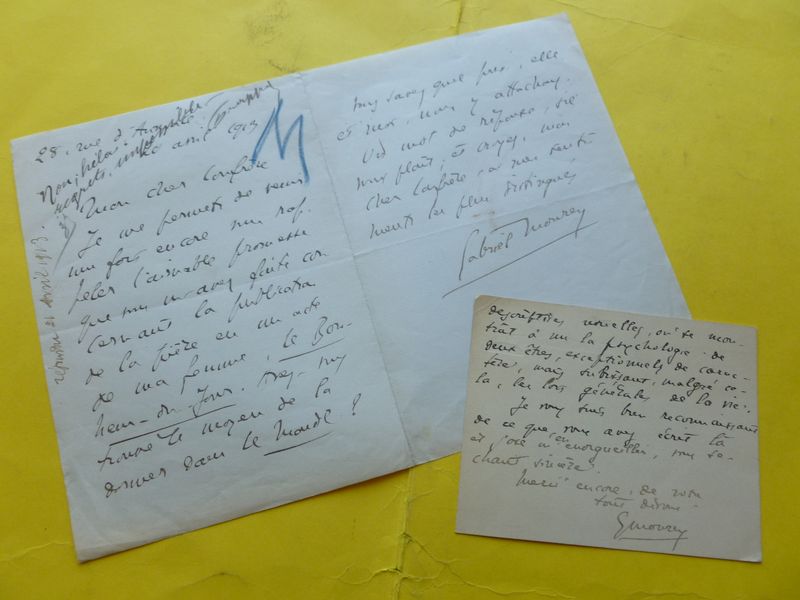 28, rue d'
Non, hélas!
regrets,
avril 1913
Mon cher confrère
Je me permets de venir
une fois encore vous rap-
peler l'aimable promesse
que vous m'avez faite con
cernant la publication
de la pièce en un acte
de ma femme, le Bon-
heur-du-Jour. Avez-vous
trouvé le moyen de la
donner dans le Monde ?
répondu 21 avril 1913.
vous savez quel prix, elle
et moi, nous y attachons.
Un mot de réponse, s'il
vous plaît, et croyez, mon
cher confrère, à nos senti
ments les plus distingués
Gabriel Mourey
descriptives nouvelles, où se mon-
trât à nu la psychologie de
deux êtres, exceptionnels de carac-
tère, mais subissant, malgré ce-
la, les lois générales de la vie.
Je vous suis bien reconnaissant
de ce que vous avez écrit là
et j'ose m'en enorgueillir, vous sa-
chant sincère.
Merci encore, de votre
tout dévoué
GMourey